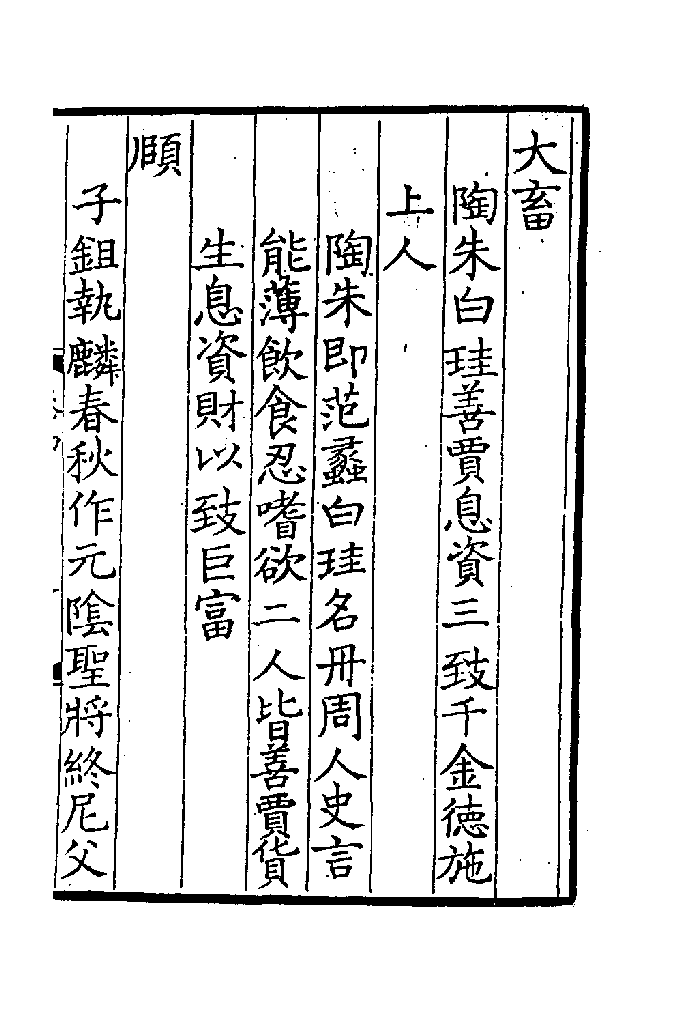 大畜
陶朱白珪善賈息資三致千金徳施
上人
陶朱即范蠡白珪名冊周人史言
能薄飲食忍嗜欲二人皆善賈貨
生息資財以致巨富
頤
子鉏執麟春秋作元陰聖將終尼父